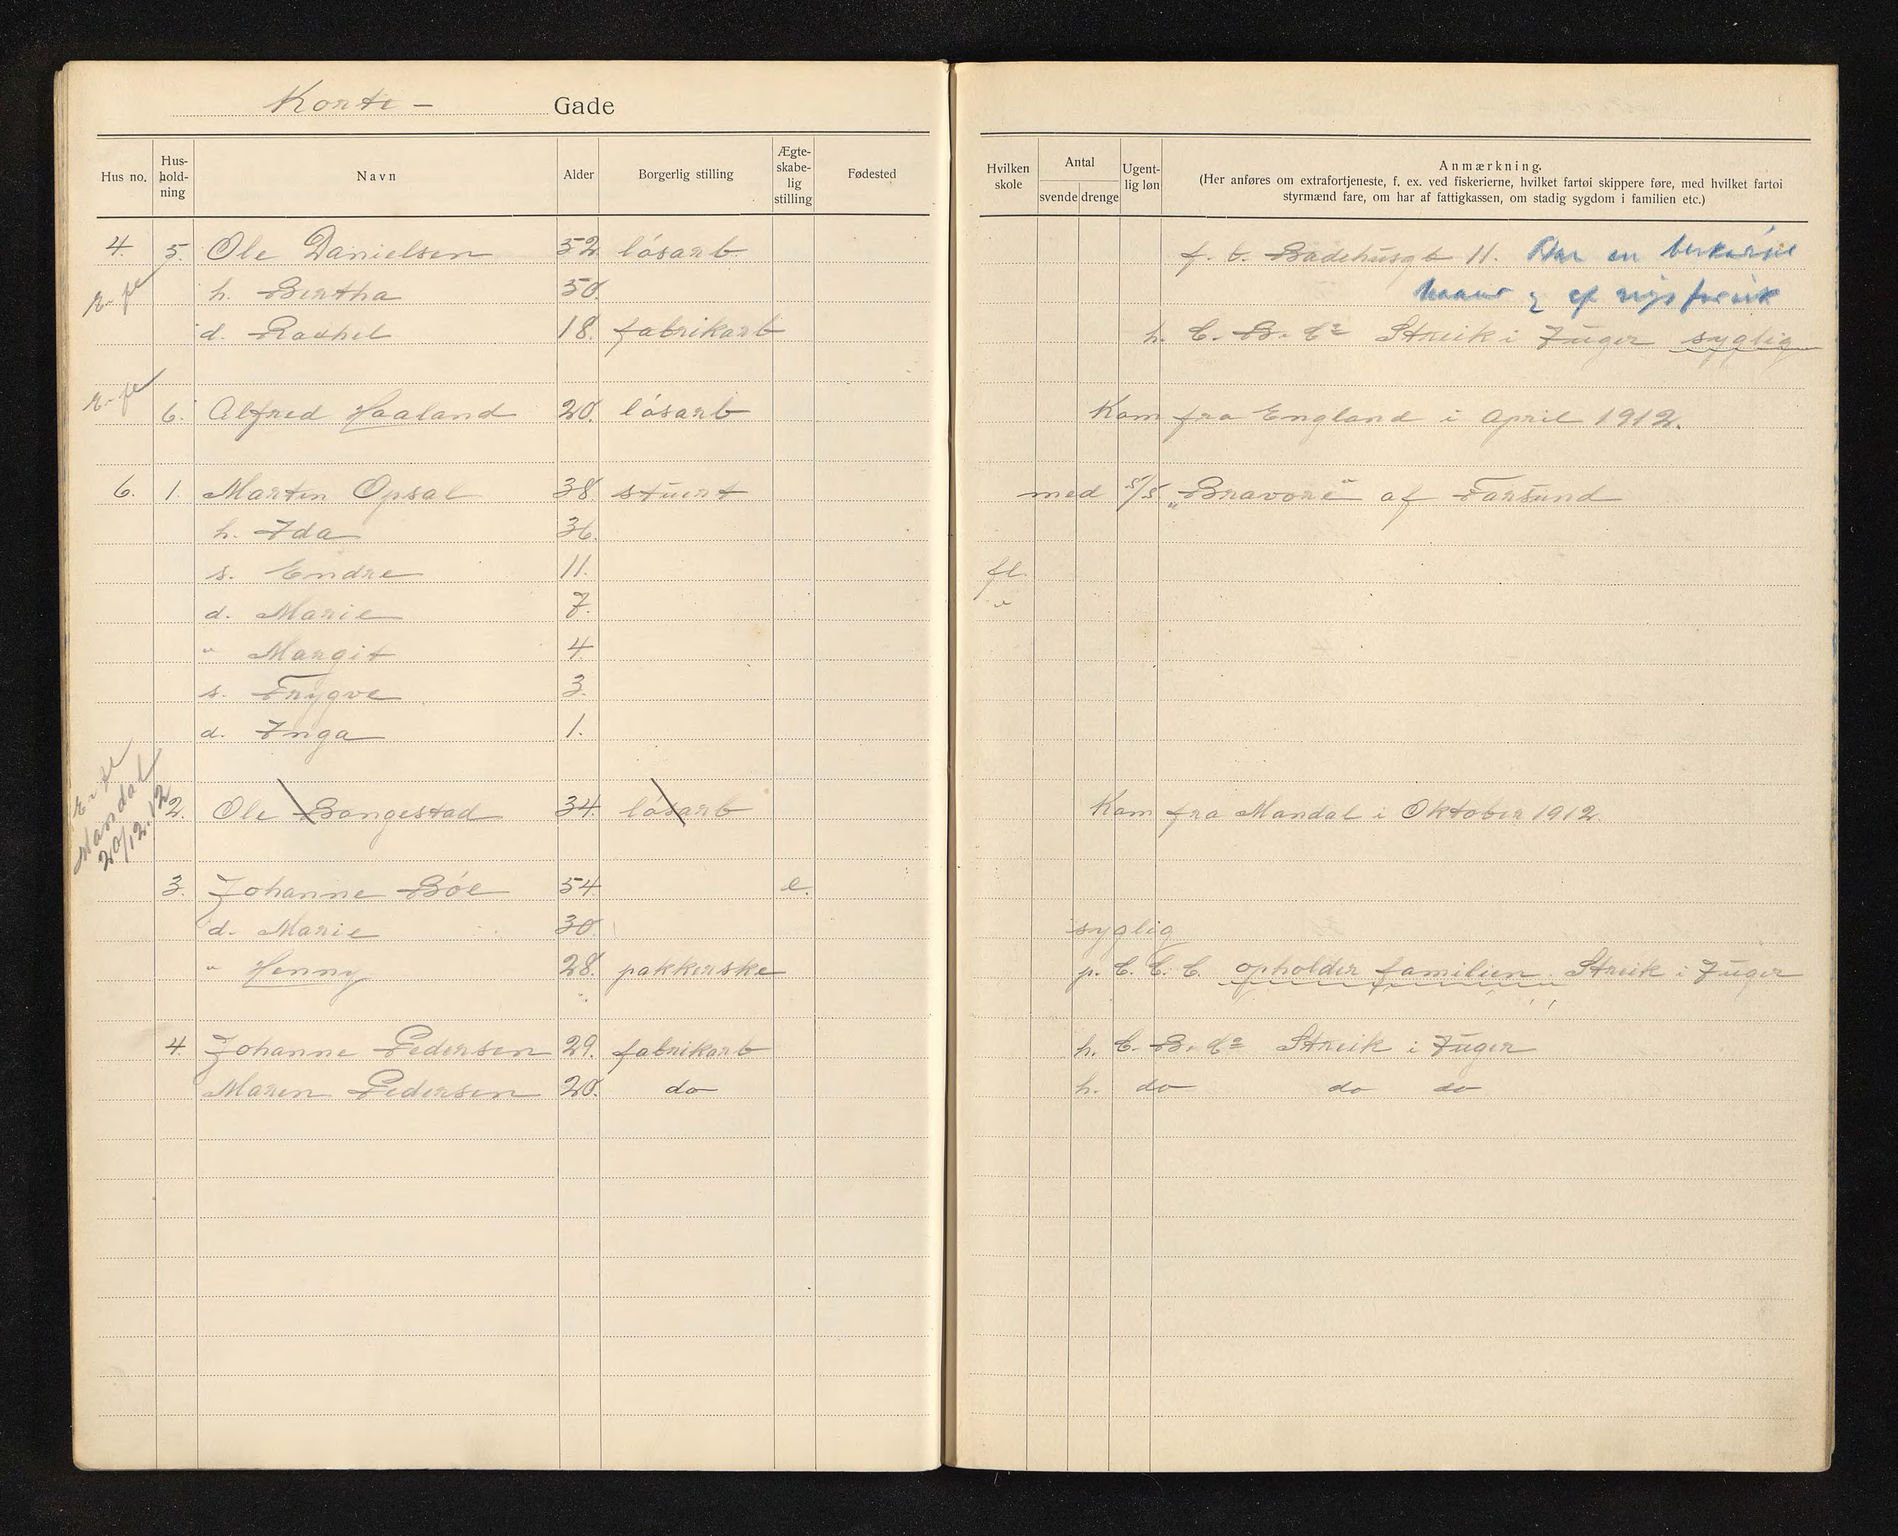 Korte - Gade
Hus no. Hus-hold-ning Navn Alder Borgerlig stilling Ægte-skabe-lig stilling Fødested Hvilken skole Antal svende drenge Ugent-lig løn Anmærkning.
(Her anføres om extrafortjeneste, f. ex. ved fiskerierne, hvilket fartøi skippere føre, med hvilket fartøi
styrmænd fare, om har af fattigkassen, om stadig sygdom i familien etc.)
4. 5. Ole Danielsen 52 løsarb f. b. Badehusgt 11. Har en
h. Bertha 50.
d. Rachel 18. fabrikarb h. C. B. Co Streik i 7 uger syglig
6. Alfred Haaland 20. løsarb Kom fra England i April 1912.
6. 1. Marten Opsal 38. stuert med S/S "Bravore" af Farsund
h. Ida 36.
s. Endre 11. fl.
d. Marie 7. "
" Margit 4
s. Trygve 3.
d. Inga 1.
Mandal
20/12.12
2. Ole Bangestad 34. løsarb Kom fra Mandal i Oktober 1912.
3. Johanne Bøe 54 e.
d. Marie 30. syglig
" Henny 28. pakkerske p. C. C. C. opholder familien. Streik i 7 uger
4. Johanne Pedersen 29. fabrikarb h. C. B. Co Streik i 7 uger
Maren Pedersen 20. do h. do do do